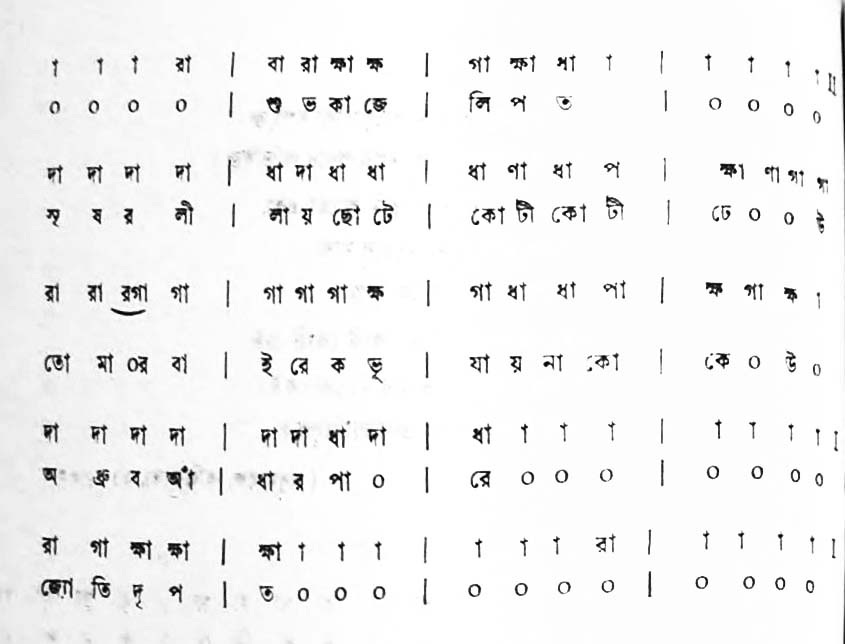 া া া রা | বা রা ক্ষা ক্ষ | গা ক্ষা ধা া | া া া া II
০ ০ ০ ০ | শু ভ কা জে | লি প ত | ০ ০ ০ ০
র্সা র্সা র্সা র্সা | ধা র্সা ধা ধা | ধা ণা ধা প | ক্ষা পা গা গা
সৃ ষ র লী | লা য় ছো টে | কো টী কো টী | ঢে ০ ০ উ
রা রা রগা গা | গা গা গা ক্ষ | গা ধা ধা পা | ক্ষ গা ক্ষ া
তো মা ০র বা | ই রে ক ভূ | যা য় না কো | কে ০ উ ০
র্সা র্সা র্সা র্সা | র্সা র্সা ধা র্সা | ধা া া া | া া া া I
অ ধ্রু ব আঁ | ধা র পা ০ | রে ০ ০ ০ | ০ ০ ০ ০
রা গা ক্ষা ক্ষা | ক্ষা া া া | া া া রা | া া া া I
জ্যো তি দৃ প | ত ০ ০ ০ | ০ ০ ০ ০ | ০ ০ ০ ০